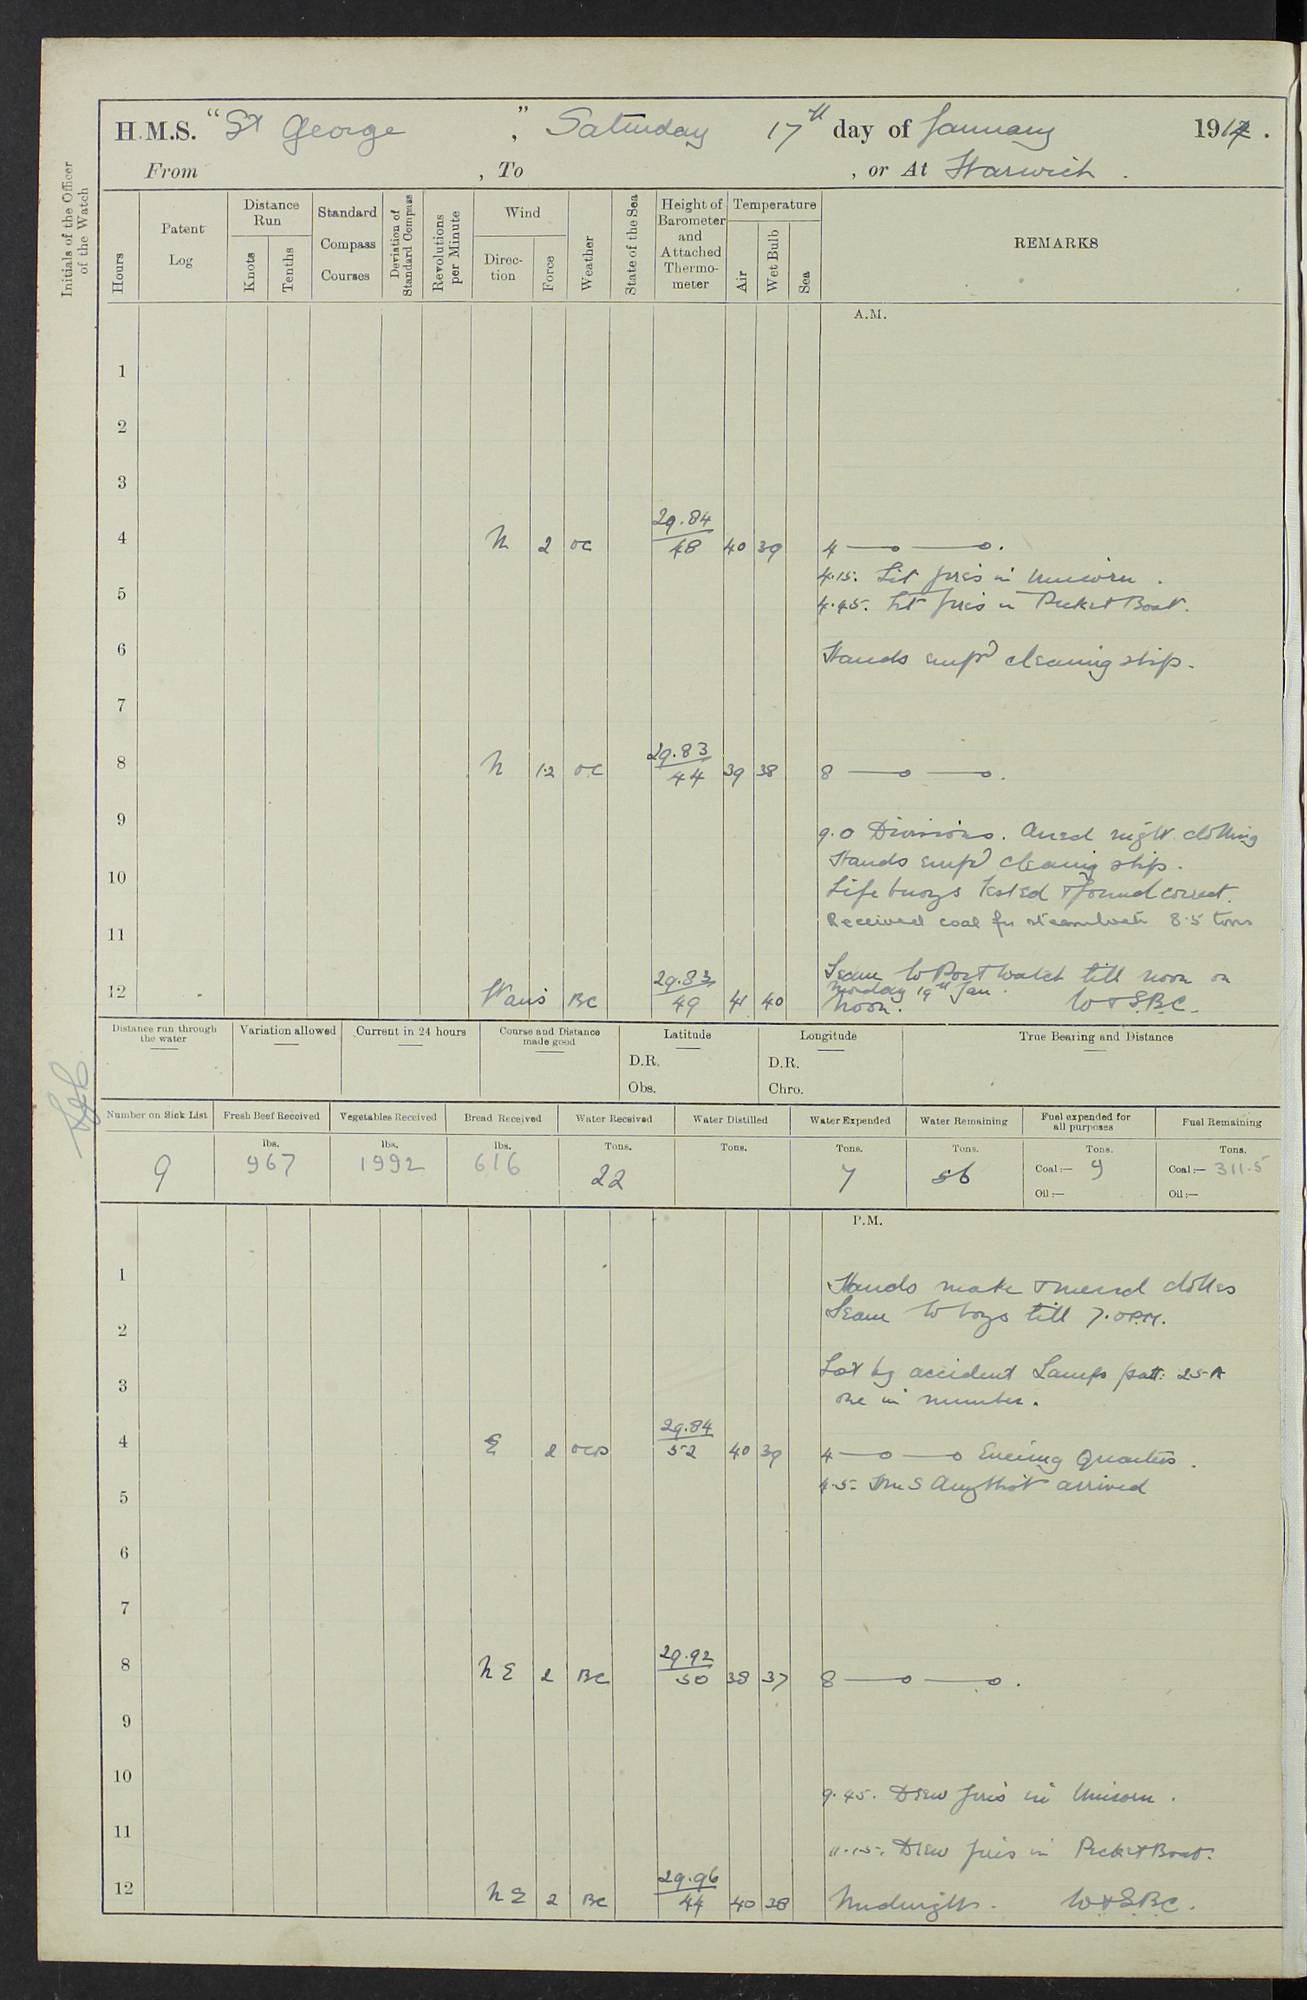 H.M.S. "St George", Saturday 17th day of January 1914.
From , To , or At Harwich.
Initials of the Officer of the Watch
Hours
Patent Log
Distance Run
Knots
Tenths
Standard Compass Courses
Deviation of Standard Compass
Revolutions per Minute
Wind
Direction
Force
Weather
State of the Sea
Height of Barometer and Attached Thermometer
Temperature
Air
Wet Bulb
Sea
REMARKS
A.M.
1
2
3
4 N 2 oc 29.84/48 40 39 4 —o —o.
4.15. Lit fires in Unicorn.
5 4.45. Lit fires in Picket Boat.
6 Hands empd cleaning ship.
7
8 N 1.2 oc 29.83/44 39 38 8 —o —o.
9 9.0 Divisions. Aired night clothing
Hands empd cleaning ship.
10 Life buoys tested & found correct.
11 Received coal for steamboats 8.5 tons
Leave to Port Watch till noon on
Monday 19th Jan.
12 Var's BC 29.83/49 41 40 Noon. W&SBC.
Distance run through the water
Variation allowed
Current in 24 hours
Course and Distance made good
Latitude
D.R.
Obs.
Longitude
D.R.
Chro.
True Bearing and Distance
Number on Sick List
Fresh Beef Received
Vegetables Received
Bread Received
Water Received
Water Distilled
Water Expended
Water Remaining
Fuel expended for all purposes
Fuel Remaining
9
lbs. 967
lbs. 1992
lbs. 616
Tons. 22
Tons.
Tons. 7
Tons. 56
Tons. Coal:— 9
Oil:—
Tons. Coal:— 311.5
Oil:—
P.M.
1 Hands make & mend clothes
2 Leave to boys till 7.0 P.M.
3 Lost by accident Lamps patt: 25A
one in number.
4 E 2 29.84/52 40 39 4 —o —o Evening Quarters.
5 4.5. HMS arrived
6
7
8 NE 2 BC 29.92/50 38 37 8 —o —o.
9
10 9.45. Drew fires in Unicorn.
11 11.15. Drew fires in Picket Boat.
12 NE 2 BC 29.96/44 40 38 Midnight. W&SBC.